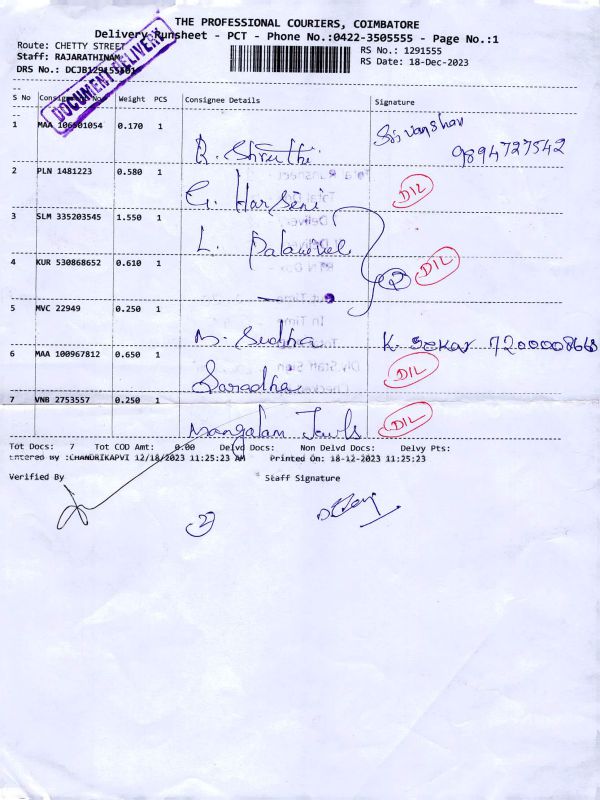 THE PROFESSIONAL COURIERS, COIMBATORE
Delivery Runsheet - PCT - Phone No.:0422-3505555 - Page No.:1
Route: CHETTY STREET
RS No.: 1291555
Staff: RAJARATHINAM
RS Date: 18-Dec-2023
DRS No.:
DOCUMENT DELIVERY
S No Weight PCS Consignee Details Signature
1 MAA 0.170 1 R. Shruthi
9894727542
2 PLN 1481223 0.580 1 G. Harseni DIL
3 SLM 335203545 1.550 1 L. Palanivel
4 KUR 530868652 0.610 1 2 DIL
5 MVC 22949 0.250 1 Sudha K. Sekar
6 MAA 100967812 0.650 1 Saradha DIL
7 VNB 2753557 0.250 1 Mangalam DIL
Tot Docs: 7 Tot COD Amt: 0.00 Delvd Docs: Non Delvd Docs: Delvy Pts:
Entered By :CHANDRIKAPVI 12/18/2023 11:25:23 AM Printed On: 18-12-2023 11:25:23
Verified By Staff Signature
2